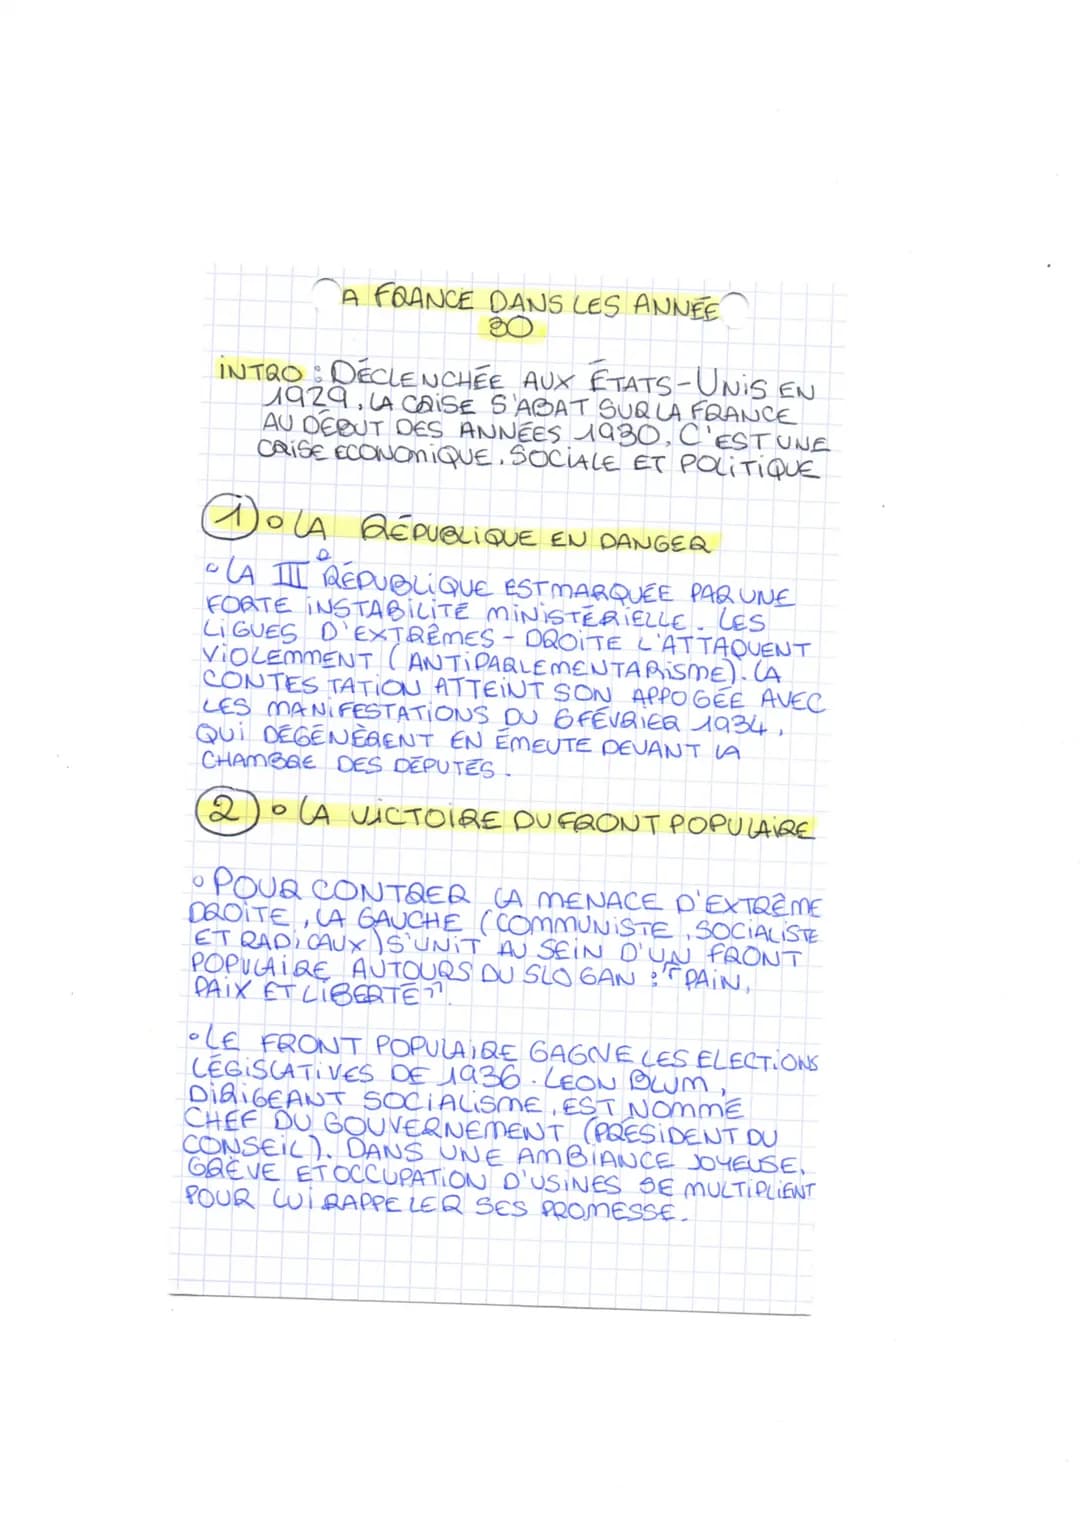 A FRANCE DANS LES ANNÉE
30
INTRO : DÉCLENCHÉE AUX ÉTATS-UNIS EN
1929, LA CRISE S'ABAT SUR LA FRANCE
AU DÉBUT DES ANNÉES 1930, C'EST UNE
CRISE ECONOMIQUE, SOCIALE ET POLITIQUE
1) • LA RÉPUBLIQUE EN DANGER
• LA IIIe RÉPUBLIQUE EST MARQUÉE PAR UNE
FORTE INSTABILITÉ MINISTÉRIELLE. LES
LIGUES D'EXTRÊMES-DROITE L'ATTAQUENT
VIOLEMMENT (ANTIPARLEMENTARISME). LA
CONTESTATION ATTEINT SON APPOGÉE AVEC
LES MANIFESTATIONS DU 6 FÉVRIER 1934,
QUI DÉGÉNÈRENT EN ÉMEUTE DEVANT LA
CHAMBRE DES DÉPUTÉS.
2) • LA VICTOIRE DU FRONT POPULAIRE
• POUR CONTRER LA MENACE D'EXTRÊME
DROITE, LA GAUCHE (COMMUNISTE, SOCIALISTE
ET RADICAUX) S'UNIT AU SEIN D'UN FRONT
POPULAIRE AUTOURS DU SLOGAN : "PAIN,
PAIX ET LIBERTÉ".
• LE FRONT POPULAIRE GAGNE LES ELECTIONS
LÉGISLATIVES DE 1936. LEON BLUM,
DIRIGEANT SOCIALISME, EST NOMMÉ
CHEF DU GOUVERNEMENT (PRÉSIDENT DU
CONSEIL). DANS UNE AMBIANCE JOYEUSE,
GRÈVE ET OCCUPATION D'USINES SE MULTIPLIENT
POUR LUI RAPPELER SES PROMESSE.